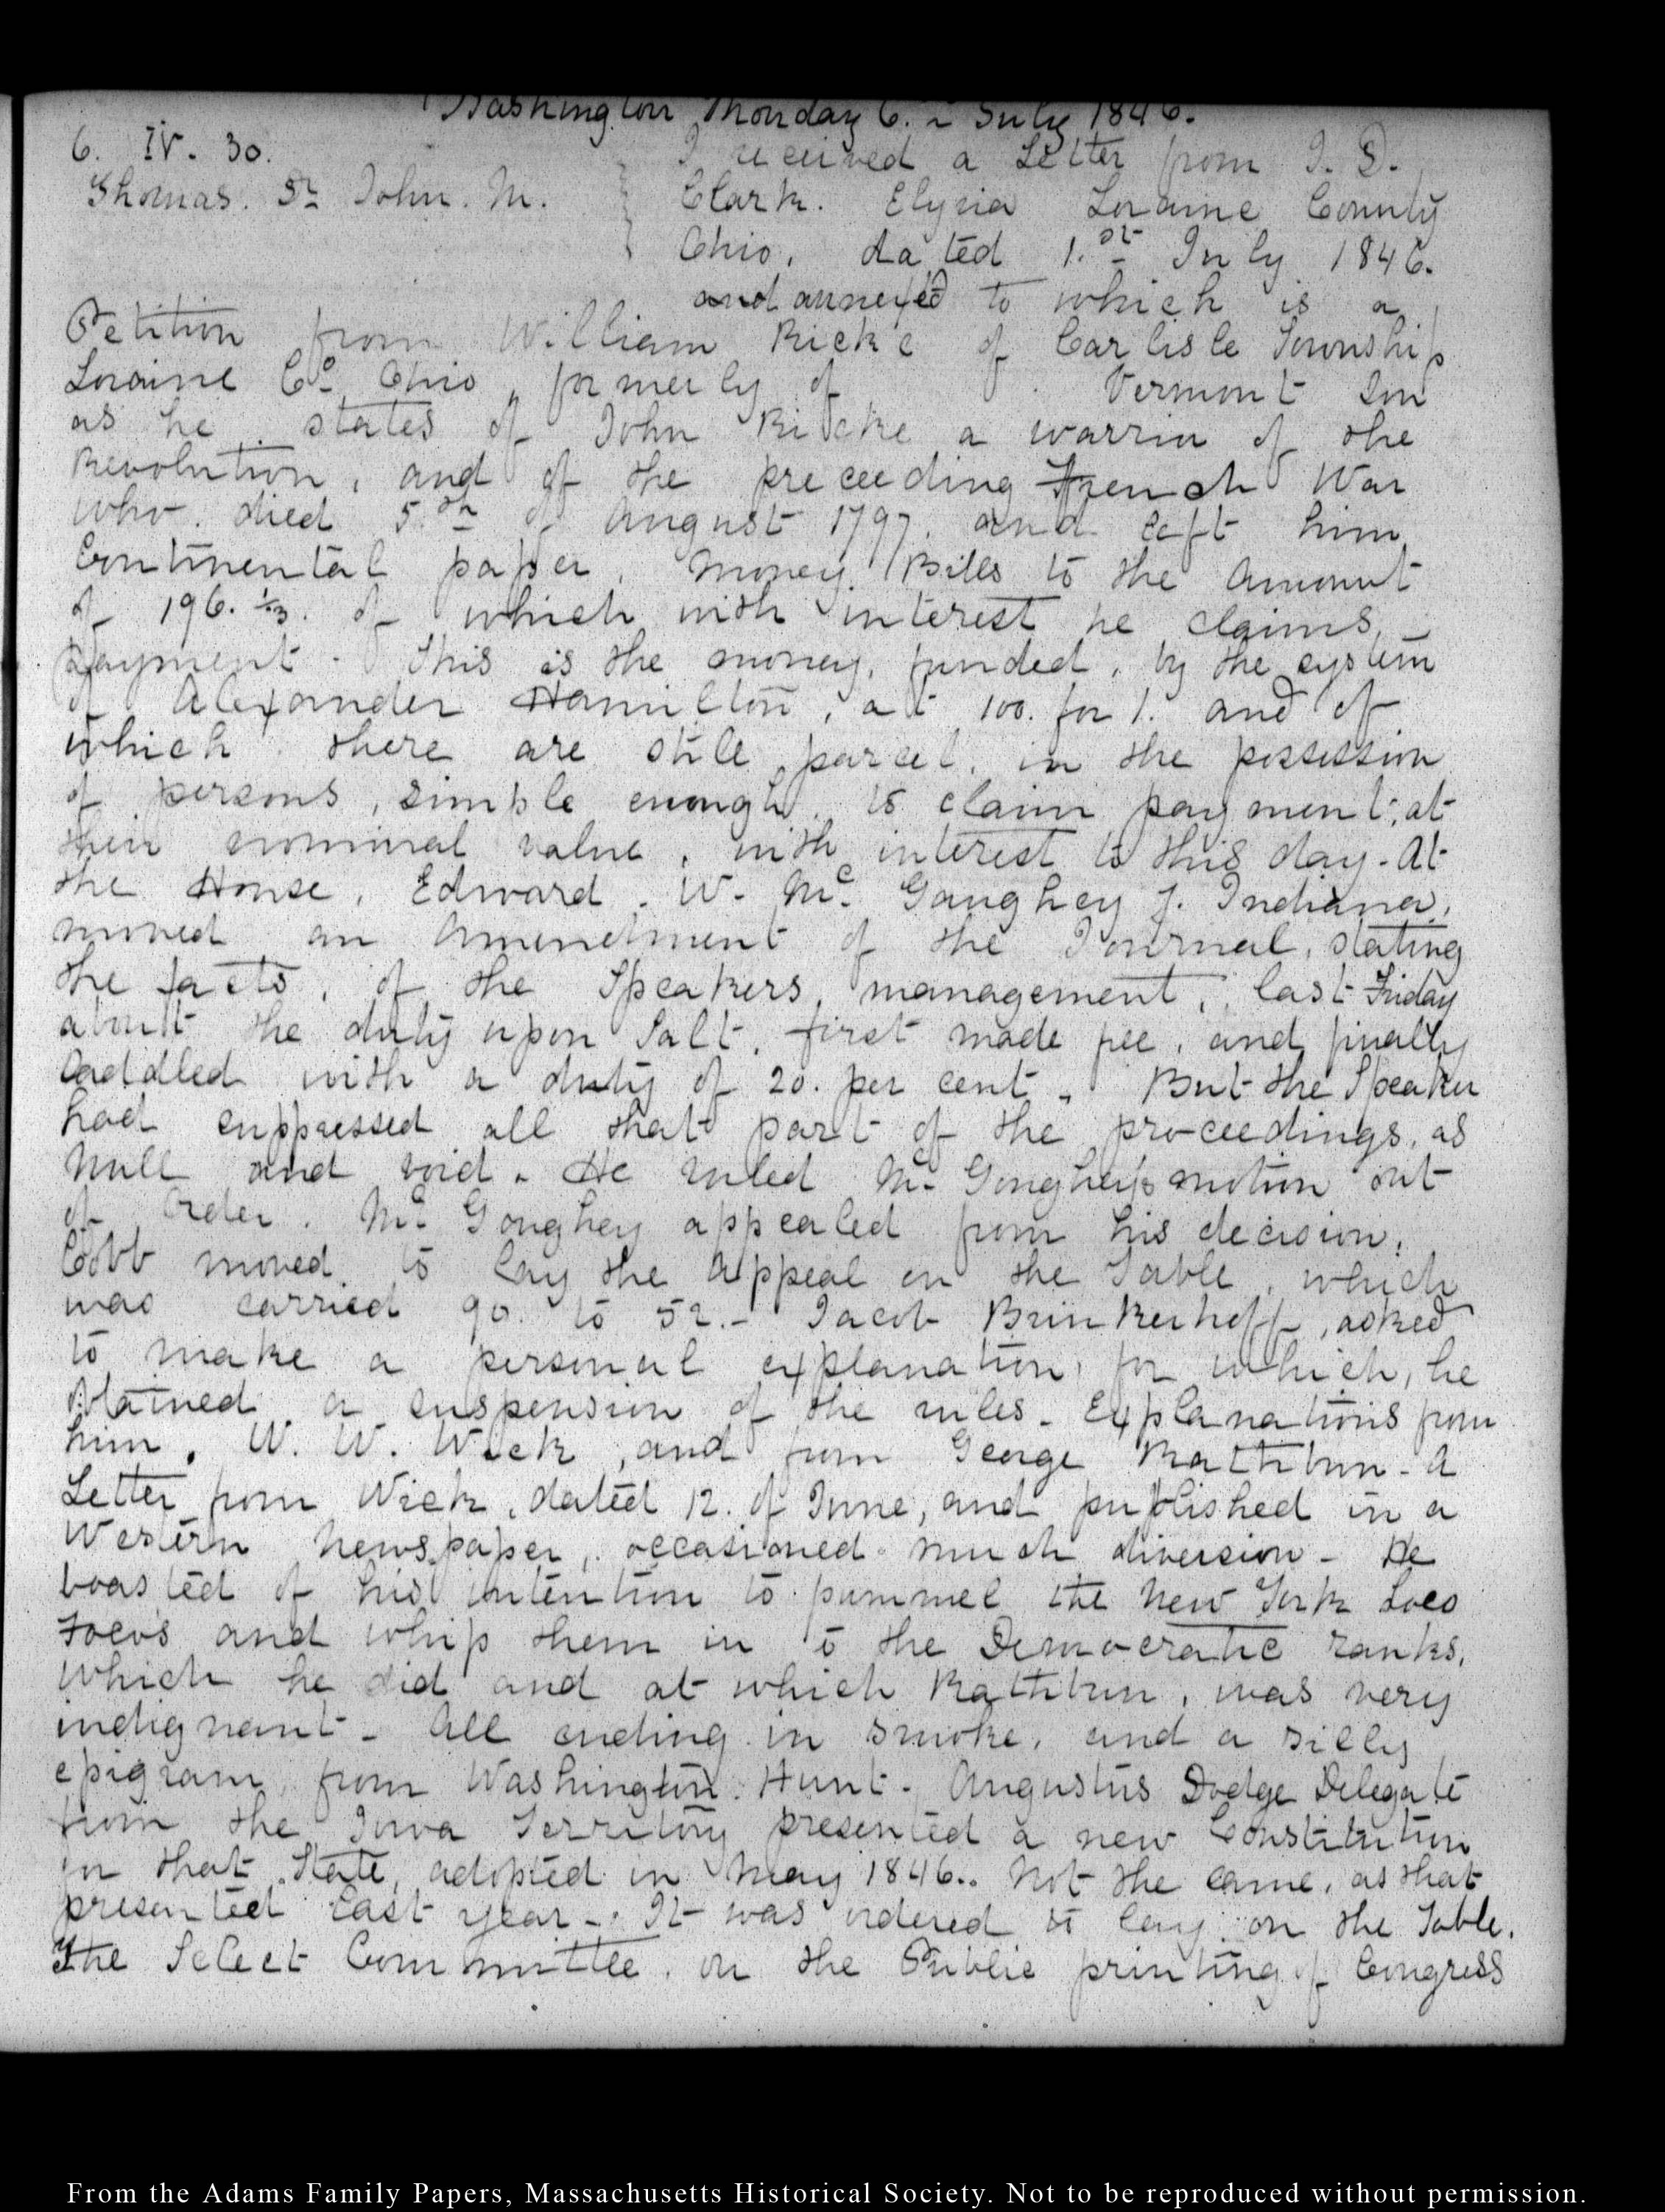 Washington Monday 6. July 1846.
6. IV. 30.
Thomas. Sr John. M.
I received a Letter from I. D.
Clark. Elyria Loraine County
Ohio, dated 1.st July 1846.
and annexed to which is a
Petition from William Ricke of Carlisle Township
Loraine Co. Ohio, formerly of Vermont Son
as he states of John Ricke a warrior of the
Revolution, and of the preceeding French War
who died 5.th of August 1797. and left him
Continental paper, Money Bills to the Amount
of 196. 1/3. of which with interest he claims
payment. This is the money, funded, by the system
of Alexander Hamilton, at 100. for 1. and of
which there are still parcel, in the possession
of persons, simple enough, to claim payment, at
their nominal value, with interest to this day. At
the House, Edward. W. Mc. Gaughey of Indiana,
moved an Amendment of the Journal, stating
the facts, of the Speakers, management, last Friday
about the duty upon Salt, first made free, and finally
saddled with a duty of 20. per cent. But the Speaker
had suppressed all that part of the proceedings, as
Null and void. He ruled Mc Goughey's motion out
of Order. Mc. Goughey appealed from his decision.
Cobb moved, to lay the Appeal on the Table, which
was carried 90. to 52.- Jacob Brinkerhoff, asked
to make a personal explanation, for which, he
obtained a suspension of the rules. Explanations from
him, W. W. Wick, and from George Rathbun. A
Letter from Wick, dated 12. of June, and published in a
Western Newspaper, occasioned much diversion - He
boasted of his intention to pummel the New York Loco
Focos and whip them in to the Democratic ranks,
which he did and at which Rathbun, was very
indignant - All ending in smoke, and a silly
epigram, from Washington Hunt. Augustus Dodge Delegate
from the Iowa Territory presented a new Constitution
for that State, adopted in May 1846.. Not the same, as that
presented last year.. It was ordered to lay on the Table.
The Select Committee, on the Public printing of Congress
From the Adams Family Papers, Massachusetts Historical Society. Not to be reproduced without permission.